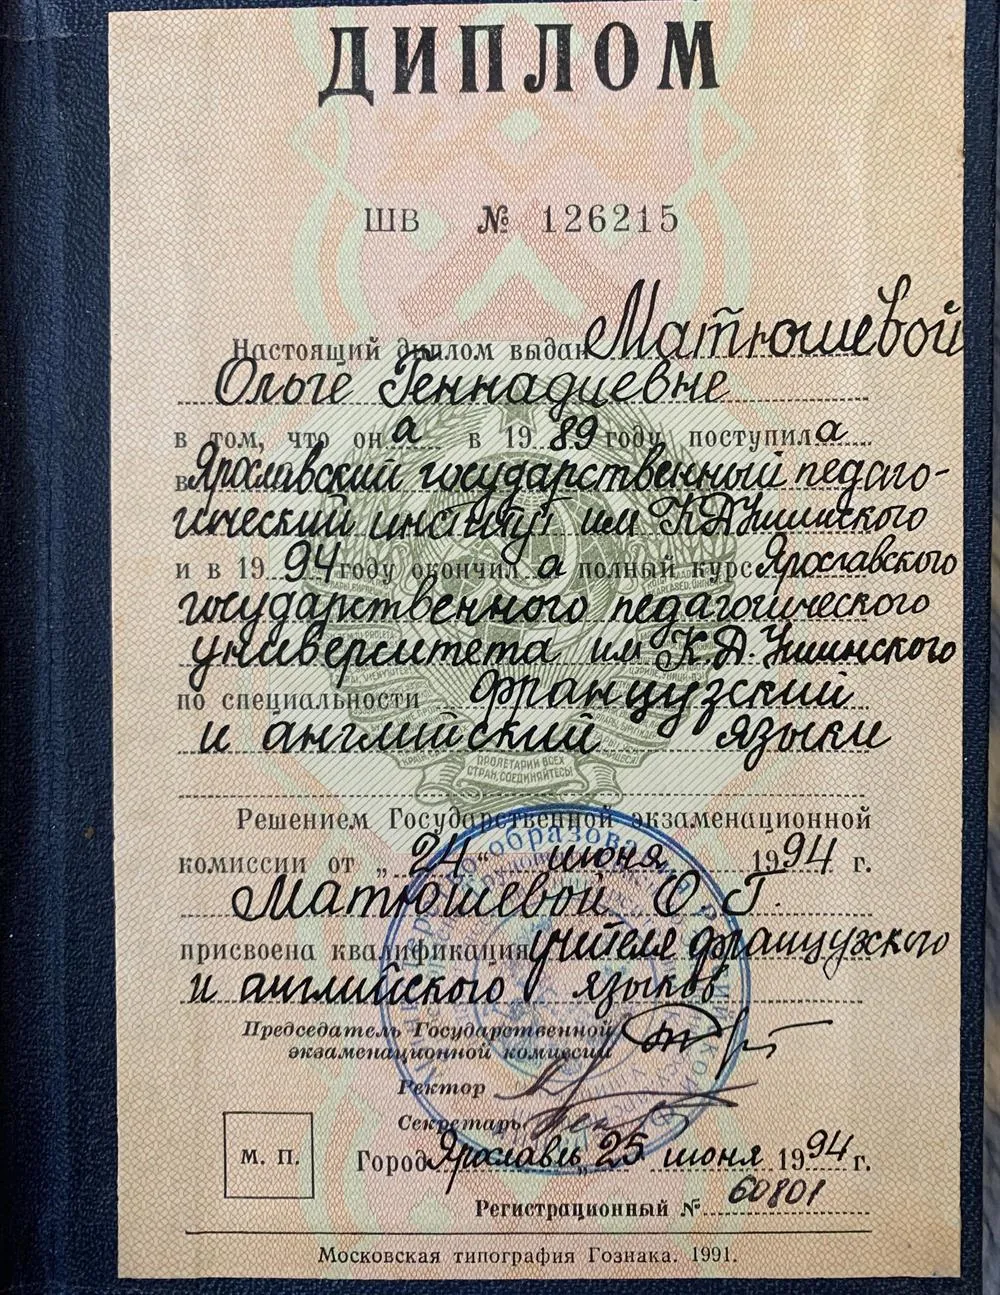 ДИПЛОМ
ШВ № 126215
Настоящий диплом выдан Матюшевой
Ольге Геннадиевне
в том, что он а в 19 89 году поступил а
в Ярославский государственный педаго-
гический институт им К Д Ушинского
и в 19 94 году окончил а полный курс Ярославского
государственного педагогического
университета им К.Д. Ушинского
по специальности французский
и английский языки
ПРОЛЕТАРИИ ВСЕХ
СТРАН, СОЕДИНЯЙТЕСЬ!
Решением Государственной экзаменационной
комиссии от „ 24 “ июня 19 94 г.
Матюшевой О. Г.
присвоена квалификация учителя французского
и английского языков.
Председатель Государственной
экзаменационной комиссии
Ректор
Секретарь
М. П.
Город Ярославль „ 25 июня 19 94 г.
Регистрационный № 60801
Московская типография Гознака. 1991.